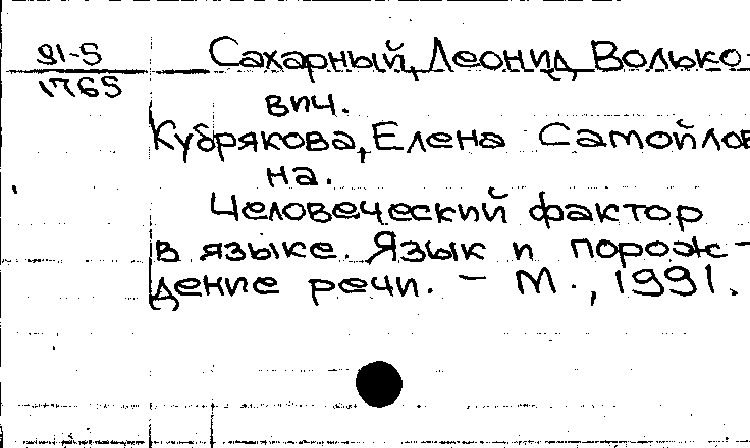 91-5
1765
Сахарный, Леонид Волько-
вич.
Кубрякова, Елена Самойлов
на.
Человеческий фактор
в языке. Язык и порож-
дение речи. - М., 1991.